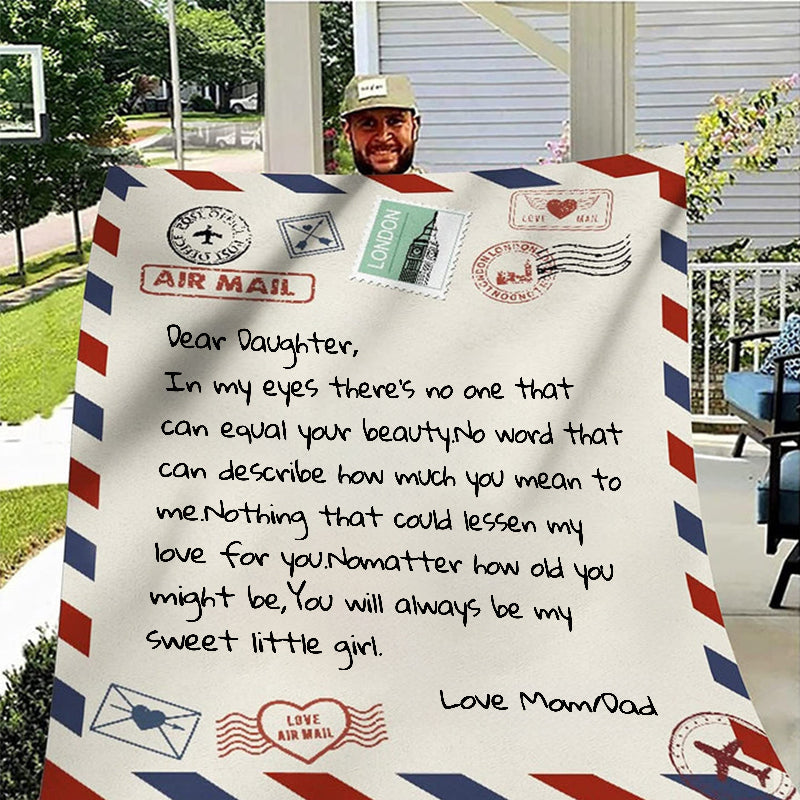 POST OFFICE POST OFFICE
AIR MAIL
LONDON
LOVE MAIL
LONDON LONDON LONDON
Dear Daughter,
In my eyes there's no one that
can equal your beauty.No word that
can describe how much you mean to
me.Nothing that could lessen my
love for you.Nomatter how old you
might be,You will always be my
sweet little girl.
Love Mom/Dad
LOVE
AIR MAIL